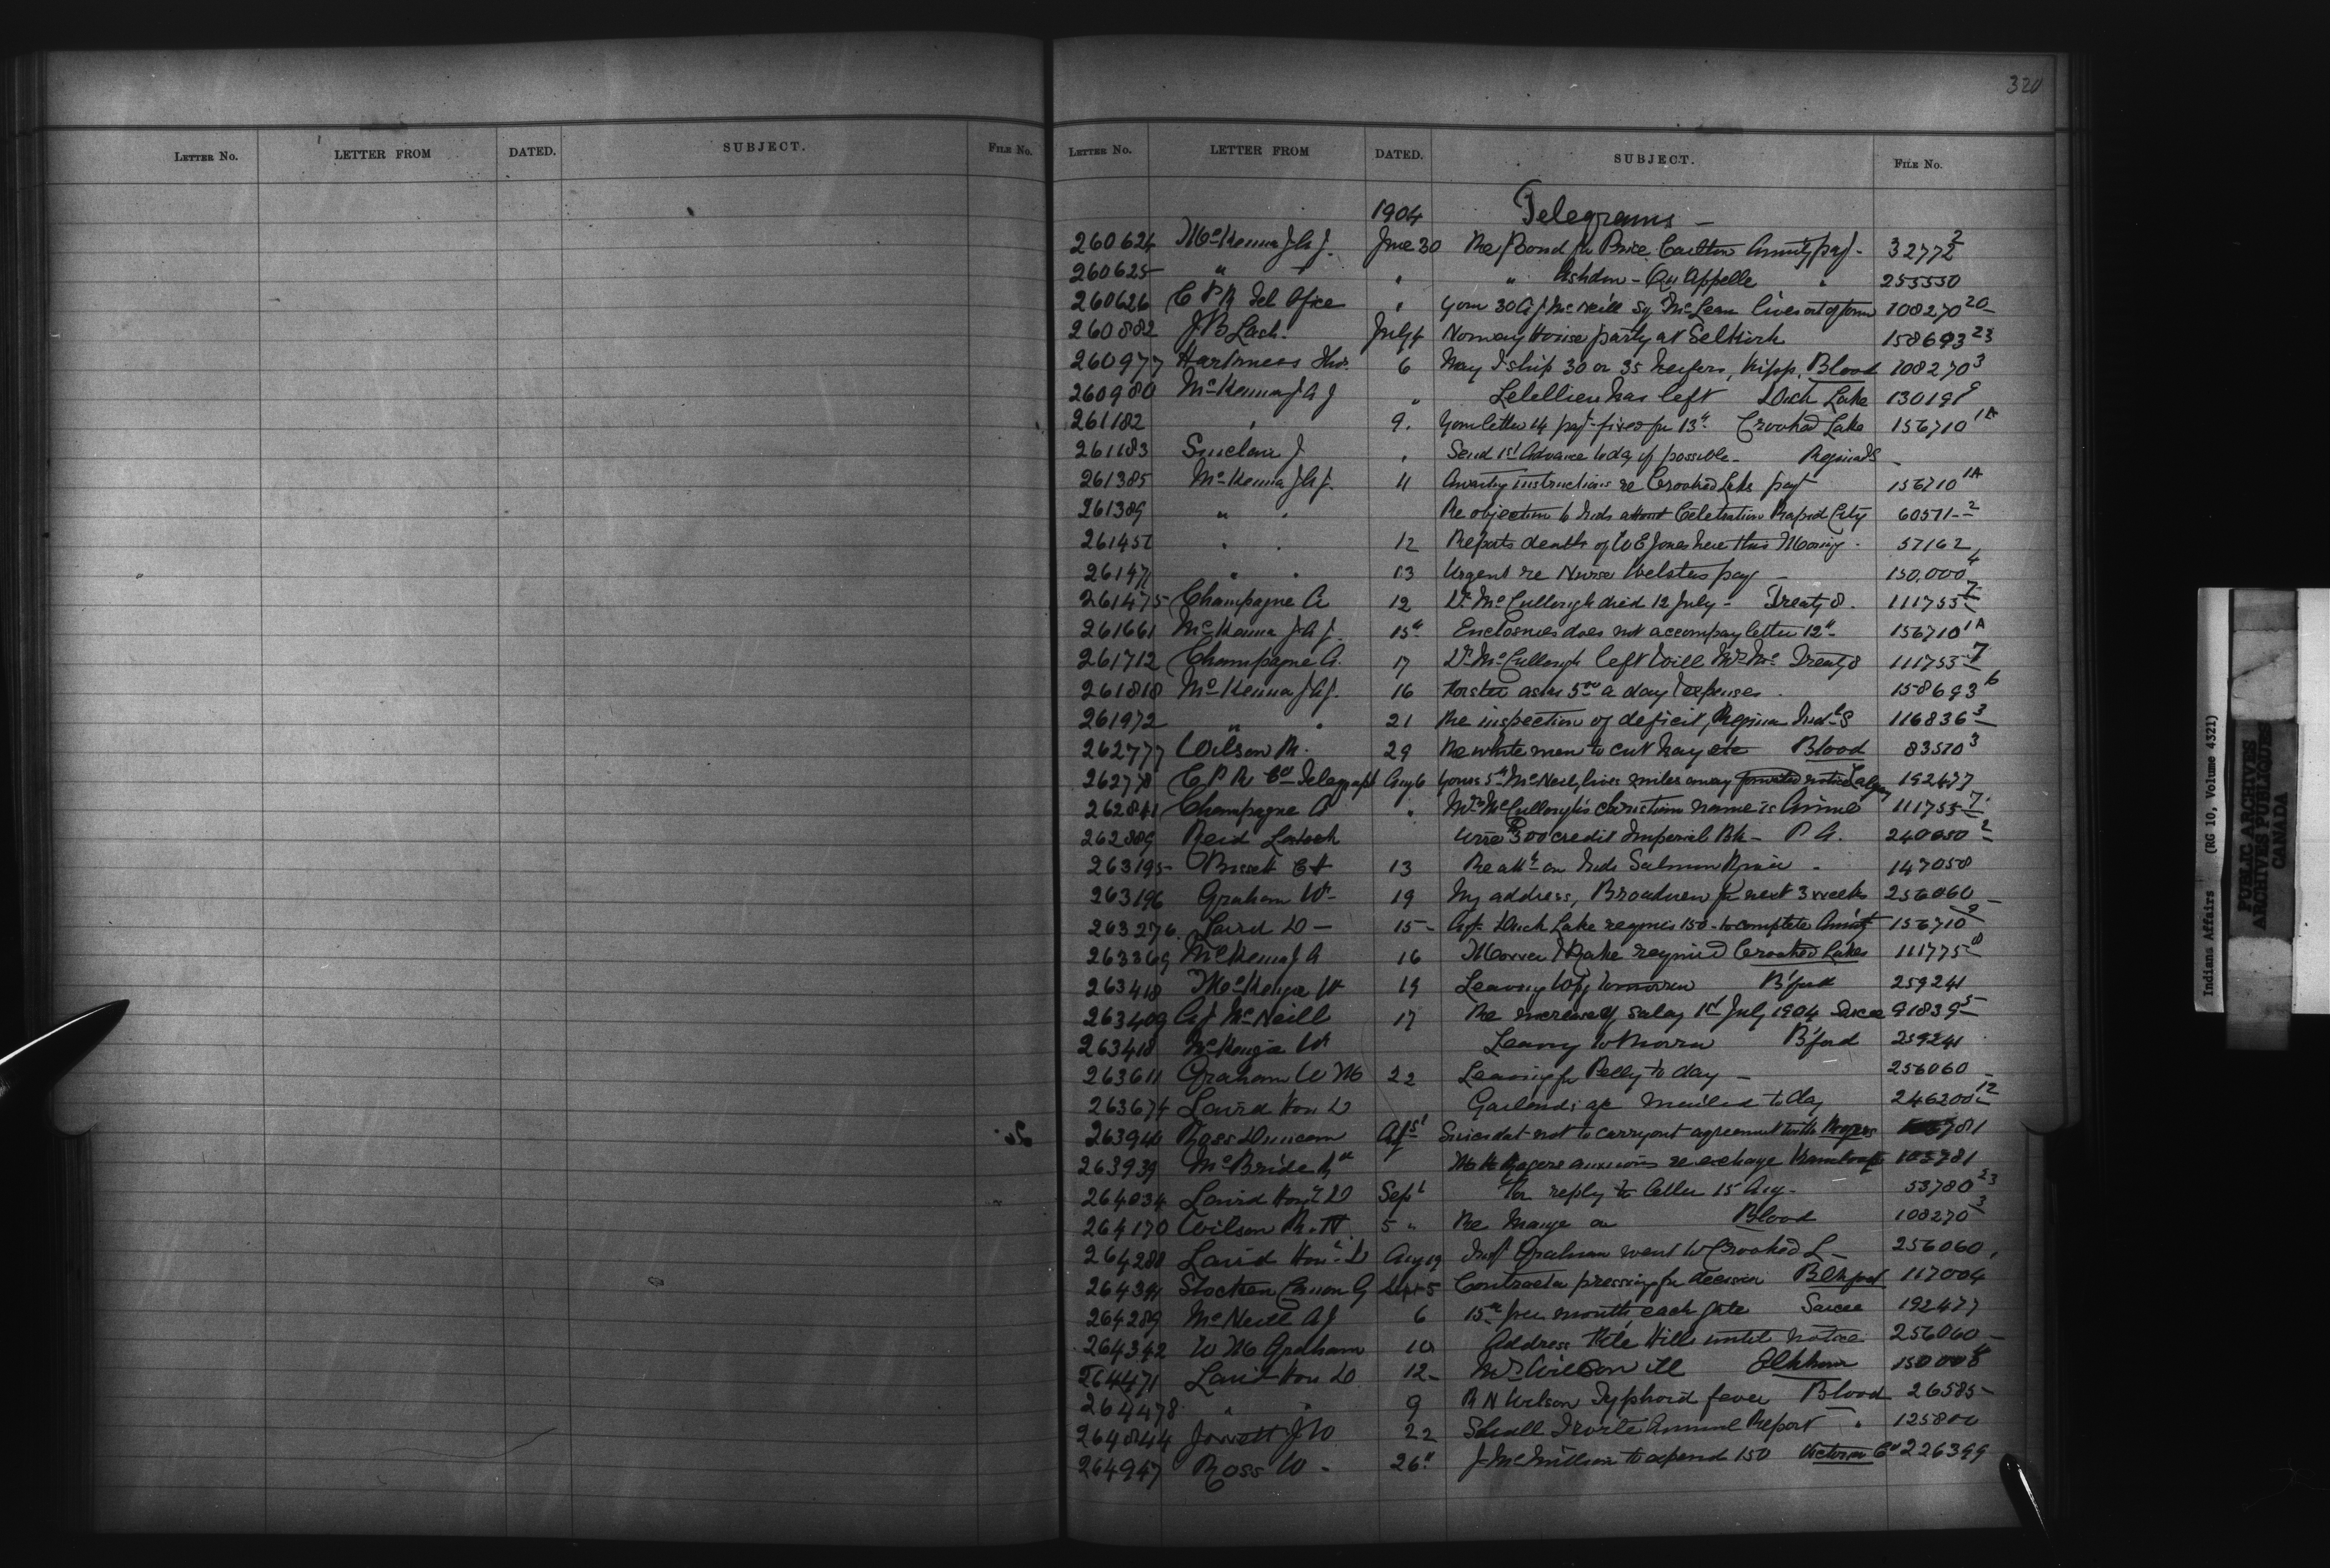 320
LETTER NO. LETTER FROM DATED. SUBJECT. FILE NO. LETTER NO. LETTER FROM DATED. SUBJECT. FILE NO.
1904 Telegrams —
260624 McKenna J A J. June 30 Re Bond for Price Carlton Annuity pay- 32772 2
260625 " " " " Ashdown - Qu Appelle " 255550
260626 C P R Tel Office " Your 30 A J McNeill Sg McLean lives out of town 108270 20
260882 J B Lash. July 4 Norway House party at Selkirk 158693 23
260977 Harkness Thos. 6 May I ship 30 or 35 heifers, Kipp. Blood 108270 3
260980 McKenna J A J " Letellier has left Duck Lake 130191 9
261182 " 9. Your letter 14 payt fixed for 13th Crooked Lake 156710 1A
261183 Sinclair J " Send 1st Advance today if possible - Regina I S -
261385 McKenna J A J. 11 Awaiting instructions re Crooked Lake payt 156710 1A
261389 " " Re objection to Inds attend Celebration Rapid City 60511-2
261451 " " 12 Reports death of W E Jones here this Morning - 57162
261471 " " 13 Urgent re Nurse Websters pay - 150,000 4
261475 Champagne A 12 Dr McCullough died 12 July - Treaty 8. 111755 7
261661 McKenna J A J. 15th Enclosures does not accompany letter 12th 156710 1A
261712 Champagne A. 17 Dr McCullough left Will Mrs Mc Treaty 8 111755 7
261818 McKenna J A J. 16 asks 5.00 a day & expenses. 158693 6
261972 " " 21 Re inspection of deficit, Regina Indl S 116836 3
262777 Wilson R. 29 Re white men to cut hay etc Blood 83570 3
262778 C P R Co Telegraph Aug 6 Yours 5th McNeill, lives miles away forwarded notice Calgary 192477
262841 Champagne A " Mrs McCullough's christian name is Annie 111755 7
262889 Reid Lestock Wire $300 credit Imperial Bk - P. A. 240050 2
263195 Bissett E H 13 Re on Inds Salmon River - 147058
263196 Graham W- 19 My address, Broadview for next 3 weeks 256060
263276. Laird D - 15- Agt Duck Lake requires 150 - to complete Annuity 156710 9
263369 McKenna J A 16 Mower & Rake required Crooked Lakes 111775 8
263418 McKenzie W 19 Leaving Wpg tomorrow B'ford 259241
263409 A J McNeill 17 Re increase of salary 1st July 1904 Sarcee 91839 5
263418 McKenzie W Leaving to Morrow B'ford 259241
263611 Graham W M 22 Leaving for Pelly to day - 256060
263674 Laird Hon D Garlands a/c mailed to day 246200 12
263944 Ross Duncan not to carry out agreement with Rogers 781
263939 McBride R M H Rogers anxious re exchange Kamloops 103781
264034 Laird Honl D Sept For reply to letter 15 Aug - 53780 23
264170 Wilson R. N. 5 " Re Mange on Blood 108270 3
264288 Laird Honl D Aug 19 Inspt Graham went to Crooked L - 256060
264394 Stocken Canon G Sept 5 Contractor pressing for decision Blkfoot 117004
264289 McNeill A J 6 15.00 per month each gate Sarcee 192477
264342 W M Graham 10 Address File Hills until notice 256060 -
264471 Laird Hon D 12- Mr Wilson ill Elkhorn 150008
264478 " " 9 R N Wilson Typhoid fever Blood 26585-
264844 Jowett J W 22 Shall I write Annual Report " 125800
264947 Ross W - 26" J McMillan to expend 150 Victoria Co 226399
Indians Affairs (RG 10, Volume 4321)
PUBLIC ARCHIVES
ARCHIVES PUBLIQUES
CANADA